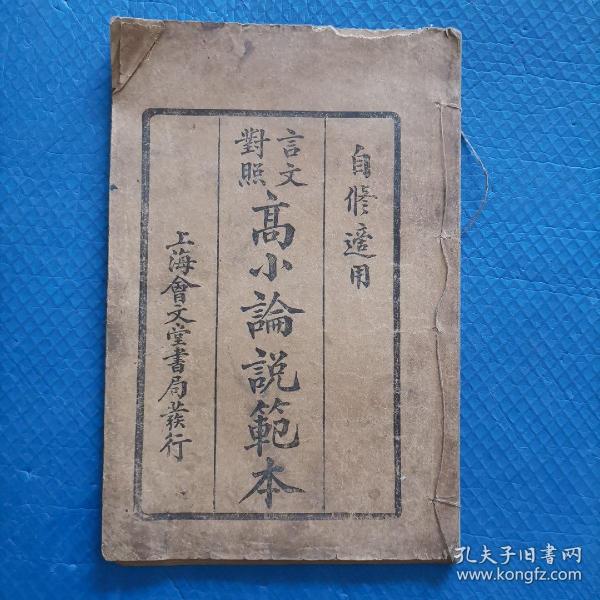 自修適用
言文
對照
高小論說範本
上海會文堂書局蕟行
孔夫子旧书网
www.kongfz.com